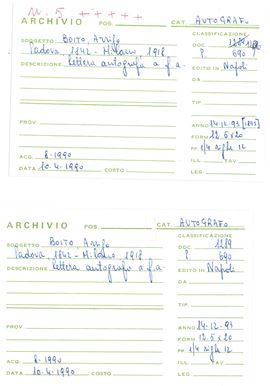 N. 5 + + + + +
ARCHIVIO POS. CAT. AUTOGRAFO
CLASSIFICAZIONE
SOGGETTO BOITO, Arrigo DOC 1289
Padova, 1842 - Milano, 1918 P 690
DESCRIZIONE lettera autografa a f.a. EDITO IN Napoli
DA
TIP
PROV ANNO 14-12-93 [1893]
FORM 12.5x20
PP 1/4
ACQ. 8-1990 ILL TAV
DATA 10.4-1990 COSTO LEG.
ARCHIVIO POS. CAT. AUTOGRAFO
CLASSIFICAZIONE
SOGGETTO BOITO, Arrigo DOC 1289
Padova, 1842 - Milano, 1918 P 690
DESCRIZIONE lettera autografa a f.a. EDITO IN Napoli
DA
TIP
PROV ANNO 14-12-93
FORM 12.5x20
PP 1/4
ACQ. 8-1990 ILL TAV
DATA 10.4-1990 COSTO LEG.